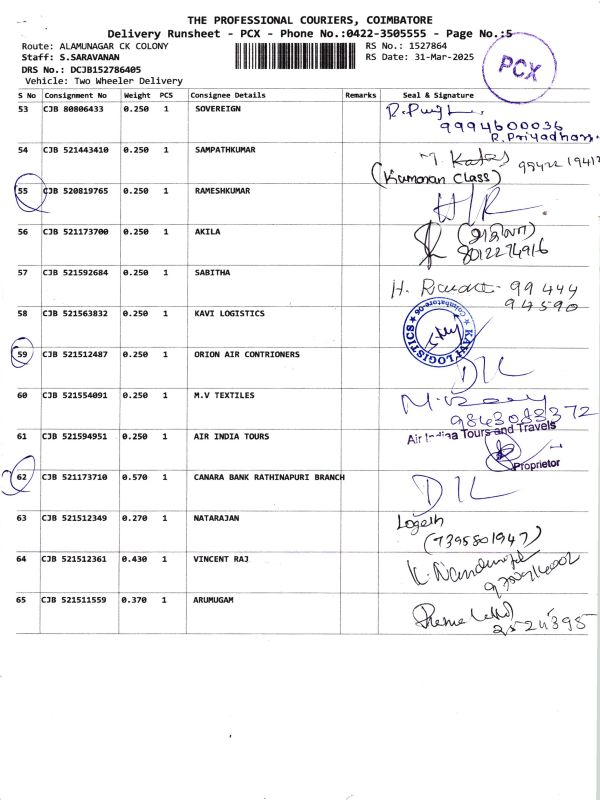 THE PROFESSIONAL COURIERS, COIMBATORE
Delivery Runsheet - PCX - Phone No.:0422-3505555 - Page No.:5
Route: ALAMUNAGAR CK COLONY
Staff: S.SARAVANAN
DRS No.: DCJB152786405
Vehicle: Two Wheeler Delivery
RS No.: 1527864
RS Date: 31-Mar-2025
PCX
S No Consignment No Weight PCS Consignee Details Remarks Seal & Signature
53 CJB 80806433 0.250 1 SOVEREIGN
9994600036
R. Priyadhars
54 CJB 521443410 0.250 1 SAMPATHKUMAR
(Kumaran Class)
55 CJB 520819765 0.250 1 RAMESHKUMAR
H/R
56 CJB 521173700 0.250 1 AKILA
(அகிலா)
8012274916
57 CJB 521592684 0.250 1 SABITHA
H. 99 444
94590
58 CJB 521563832 0.250 1 KAVI LOGISTICS
★ KAVI LOGISTICS ★ Coimbatore-06
59 CJB 521512487 0.250 1 ORION AIR CONTRIONERS
D/L
60 CJB 521554091 0.250 1 M.V TEXTILES
9843083372
61 CJB 521594951 0.250 1 AIR INDIA TOURS
Air India Tours and Travels
Proprietor
62 CJB 521173710 0.570 1 CANARA BANK RATHINAPURI BRANCH
D/L
63 CJB 521512349 0.270 1 NATARAJAN
Logesh
(7395801947)
64 CJB 521512361 0.430 1 VINCENT RAJ
65 CJB 521511559 0.370 1 ARUMUGAM